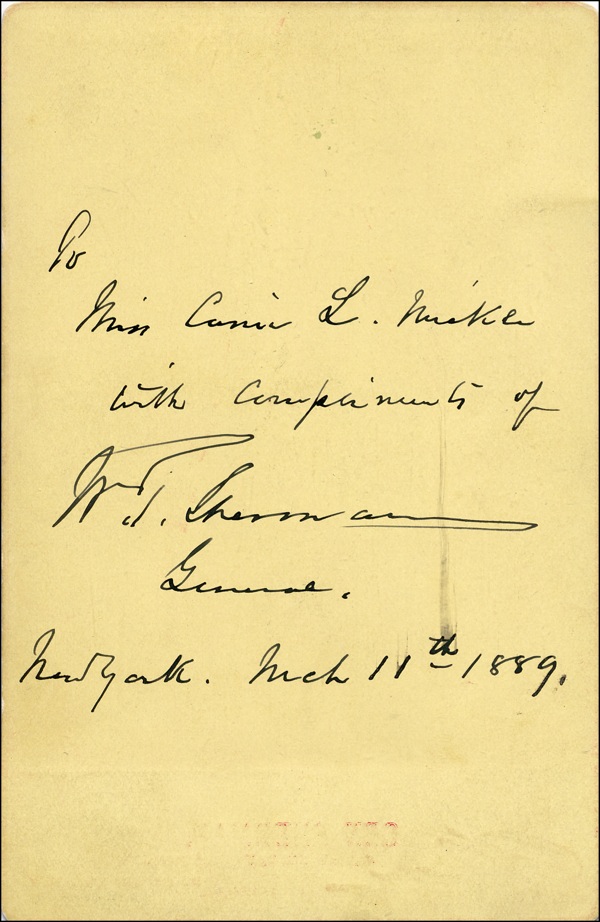 To
Miss Carrie L.
with Compliments of
W. T. Sherman
General.
New York. Mch 11th 1889.